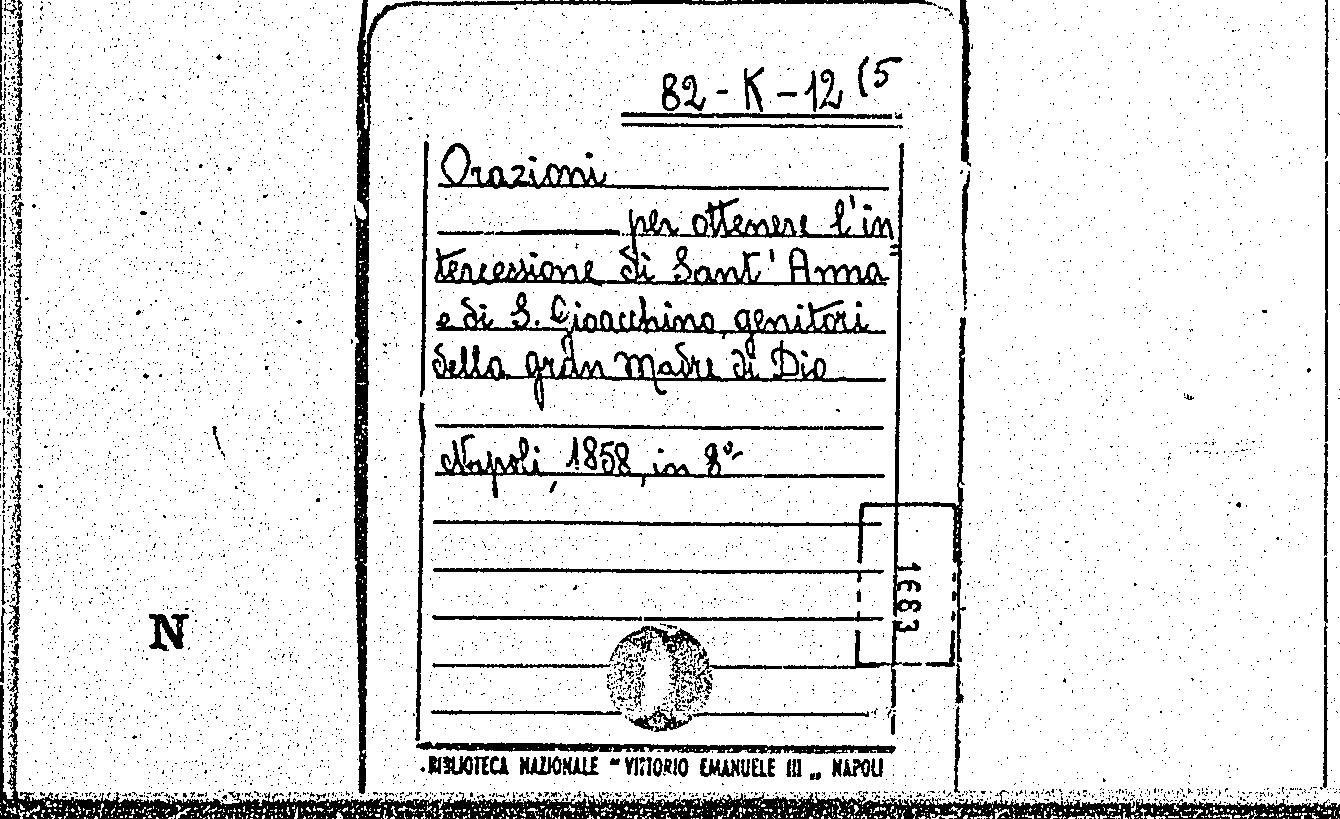 82-K-12 (5
Orazioni
per ottenere l'in=
tercessione di Sant'Anna
e di S. Gioacchino genitori
della gran Madre di Dio
Napoli, 1858, in 8°
1683
N
BIBLIOTECA NAZIONALE "VITTORIO EMANUELE III„ NAPOLI